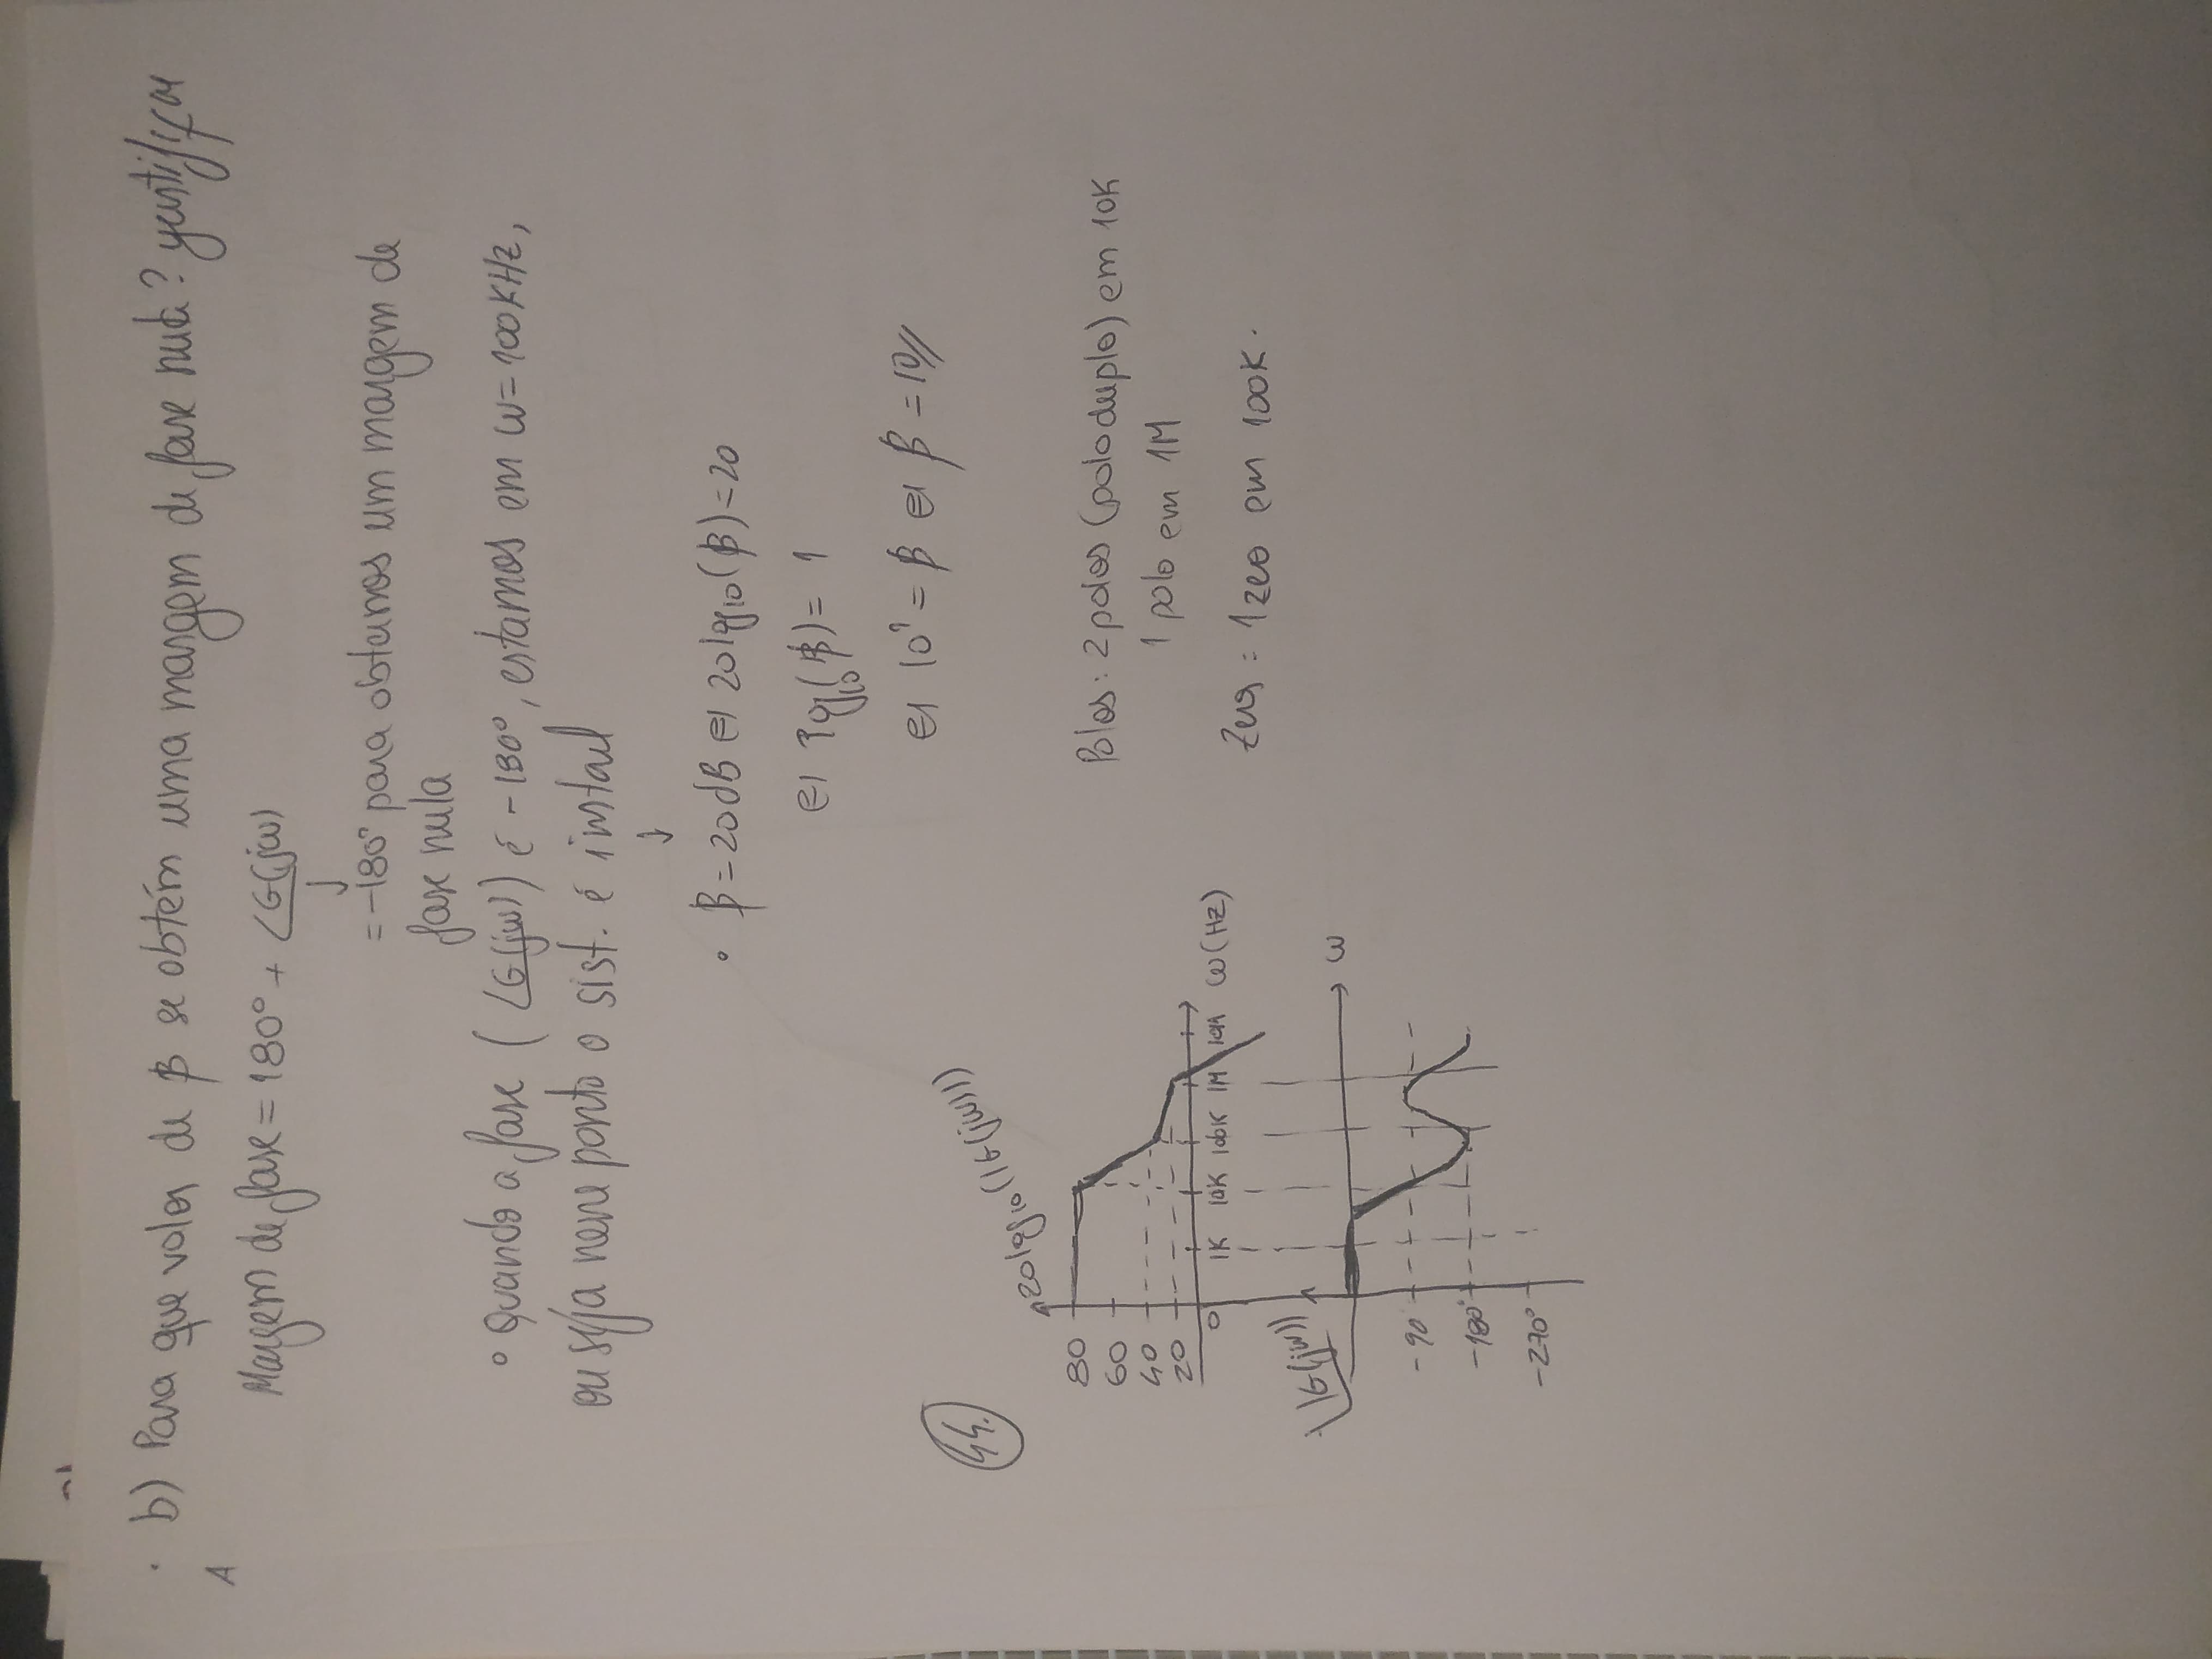 b) Para que valor de β se obtém uma margem de fase nula? Justificar
A
Margem de fase = 180° + ∠G(jω)
↓
= -180° para obtermos um margem de
fase nula
• Quando a fase (∠G(jω)) é -180°, estamos em ω = 100KHz,
ou seja nesse ponto o sist. é
↓
• β = 20dB ⇔ 20log₁₀(β) = 20
⇔ log₁₀(β) = 1
⇔ 10¹ = β ⇔ β = 10//
20log₁₀(|G(jω)|)
80
60
40
20
0
1K 10K 100K 1M 10M ω(Hz)
Polos: 2 polos (polo duplo) em 10K
1 polo em 1M
Zeros: 1 zero em 100K.
|G(jω))
ω
-90
-180°
-270°